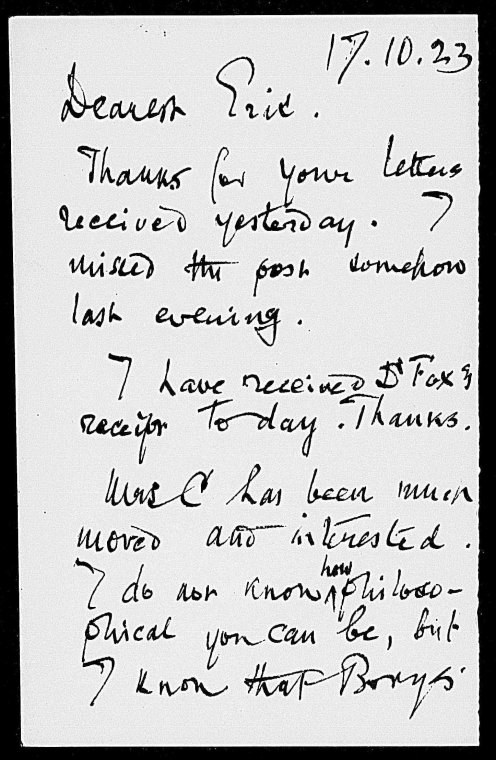 17.10.23
Dearest Eric.
Thanks for your letters
received yesterday. I
missed the post somehow
last evening.
I have received Dr Fox's
receipt to day. Thanks.
Mrs C has been much
moved and interested.
I do not know how philoso-
phical you can be, but
I know that Borys'